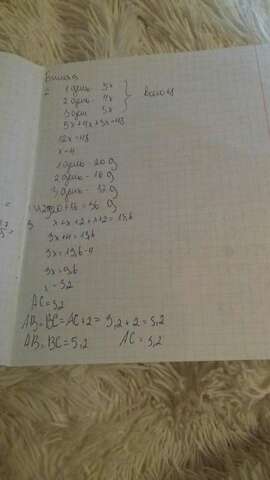 2 1 день 5x
2 день 4x
3 день 3x
5x+4x+3x=48
12x=48
x=4
1 день - 20 д
2 день - 16 д
3 день - 12 д
20+16=36 д
3 x+x+2+x+2=13,6
3x+4=13,6
3x=13,6-4
3x=9,6
x=3,2
AC=3,2
AB=BC=AC+2=3,2+2=5,2
AB=BC=5,2 AC=3,2